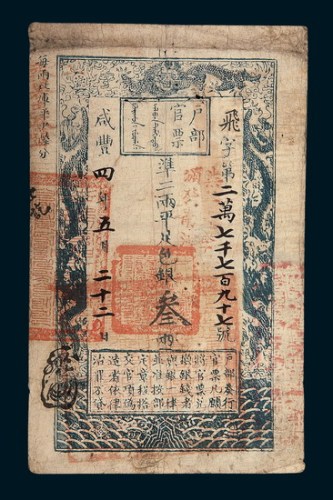 戶部
官票
飛字第二萬七千七百九十七號
準二兩平足色銀叁兩
咸豐四年五月二十二日
每兩比庫平少陸分
戶部奏行
官票凡願
將官票兌
換銀錢者
與銀一律
並准按部
定章程搭
交官項偽
造者依律
治罪不貸